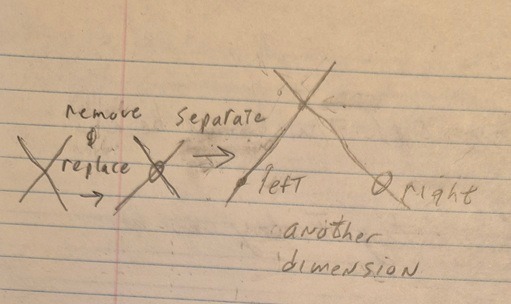 remove
&
replace
separate
left
right
another
dimension